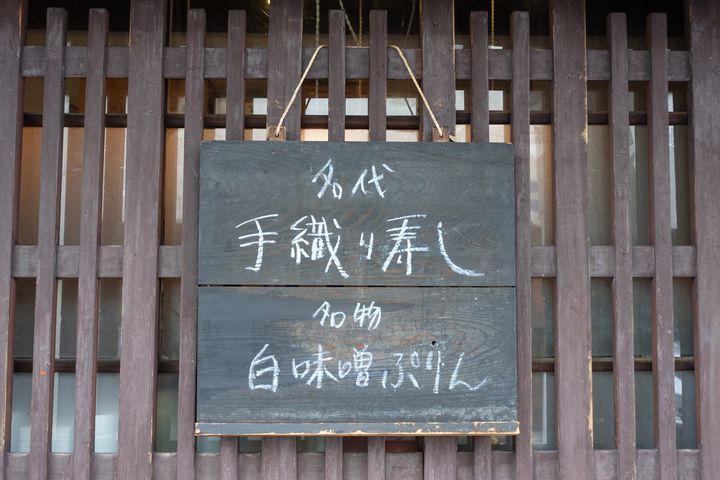 名代
手織り寿し
名物
白味噌ぷりん